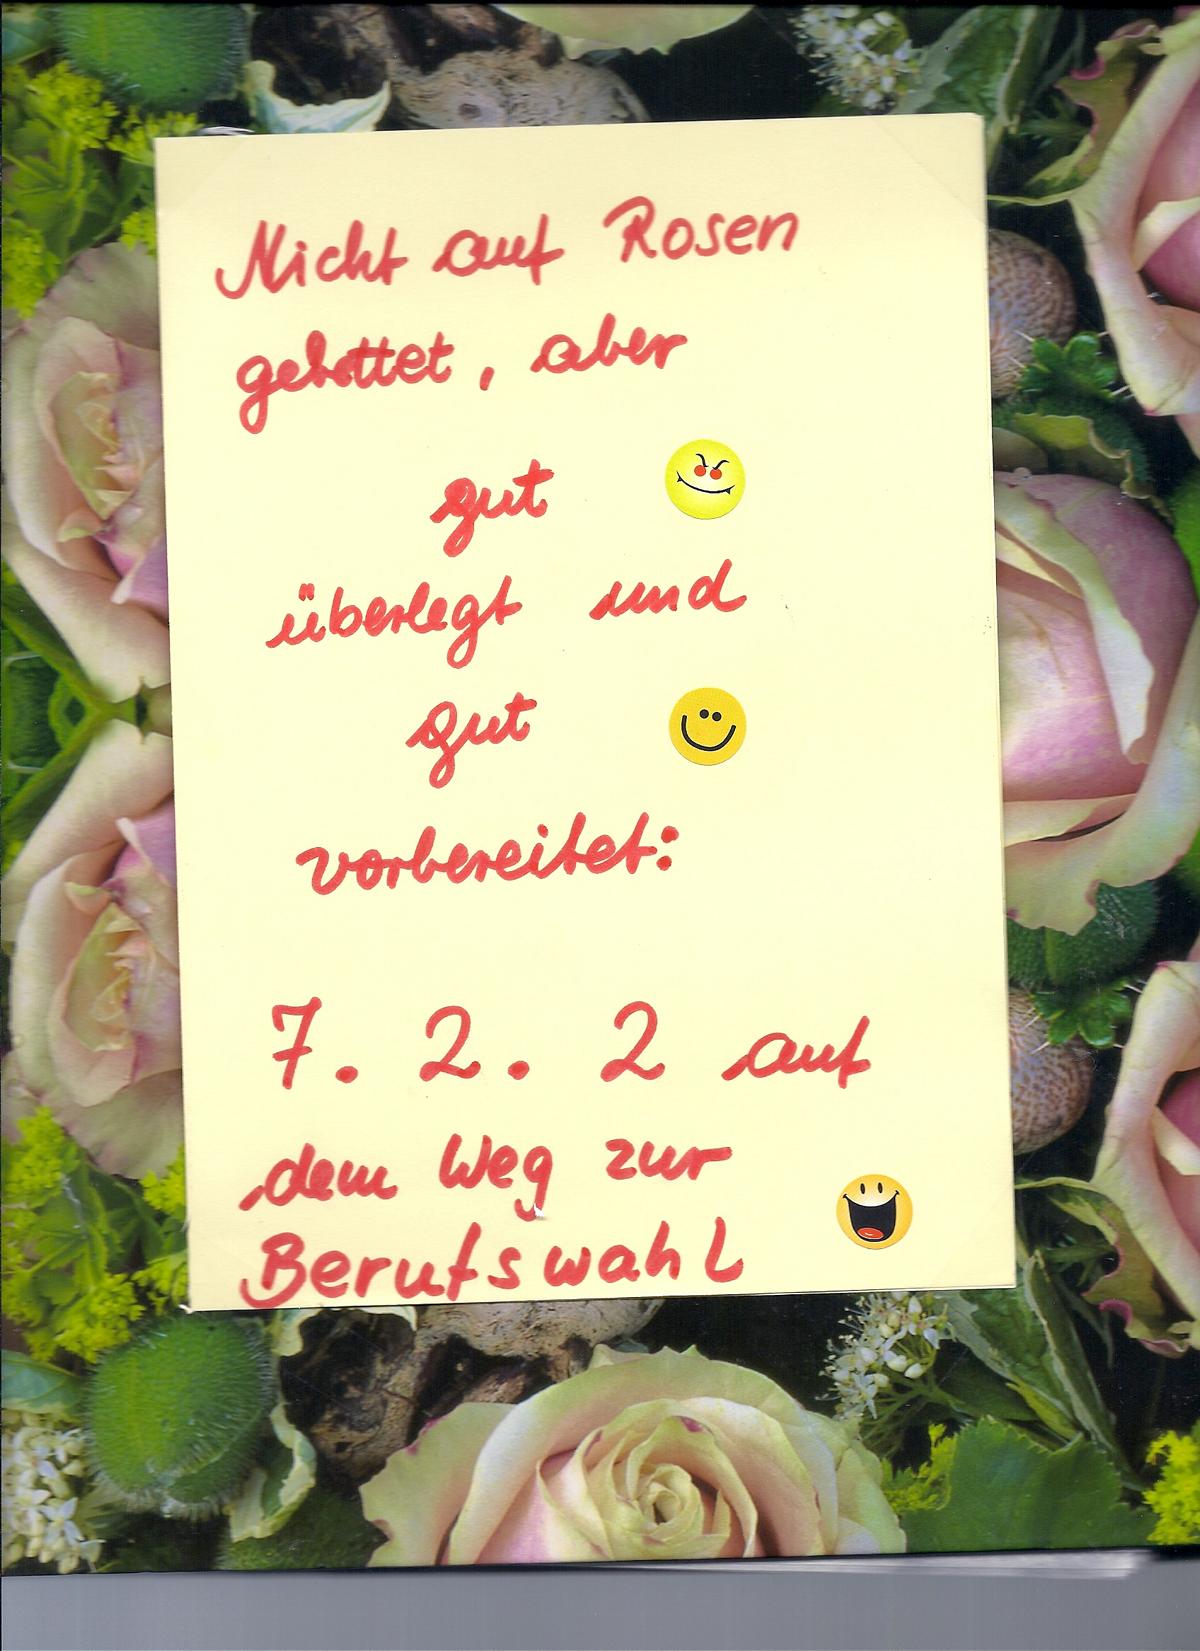 Nicht auf Rosen
gebettet, aber
gut
überlegt und
gut
vorbereitet:
7. 2. 2 auf
dem Weg zur
Berufswahl